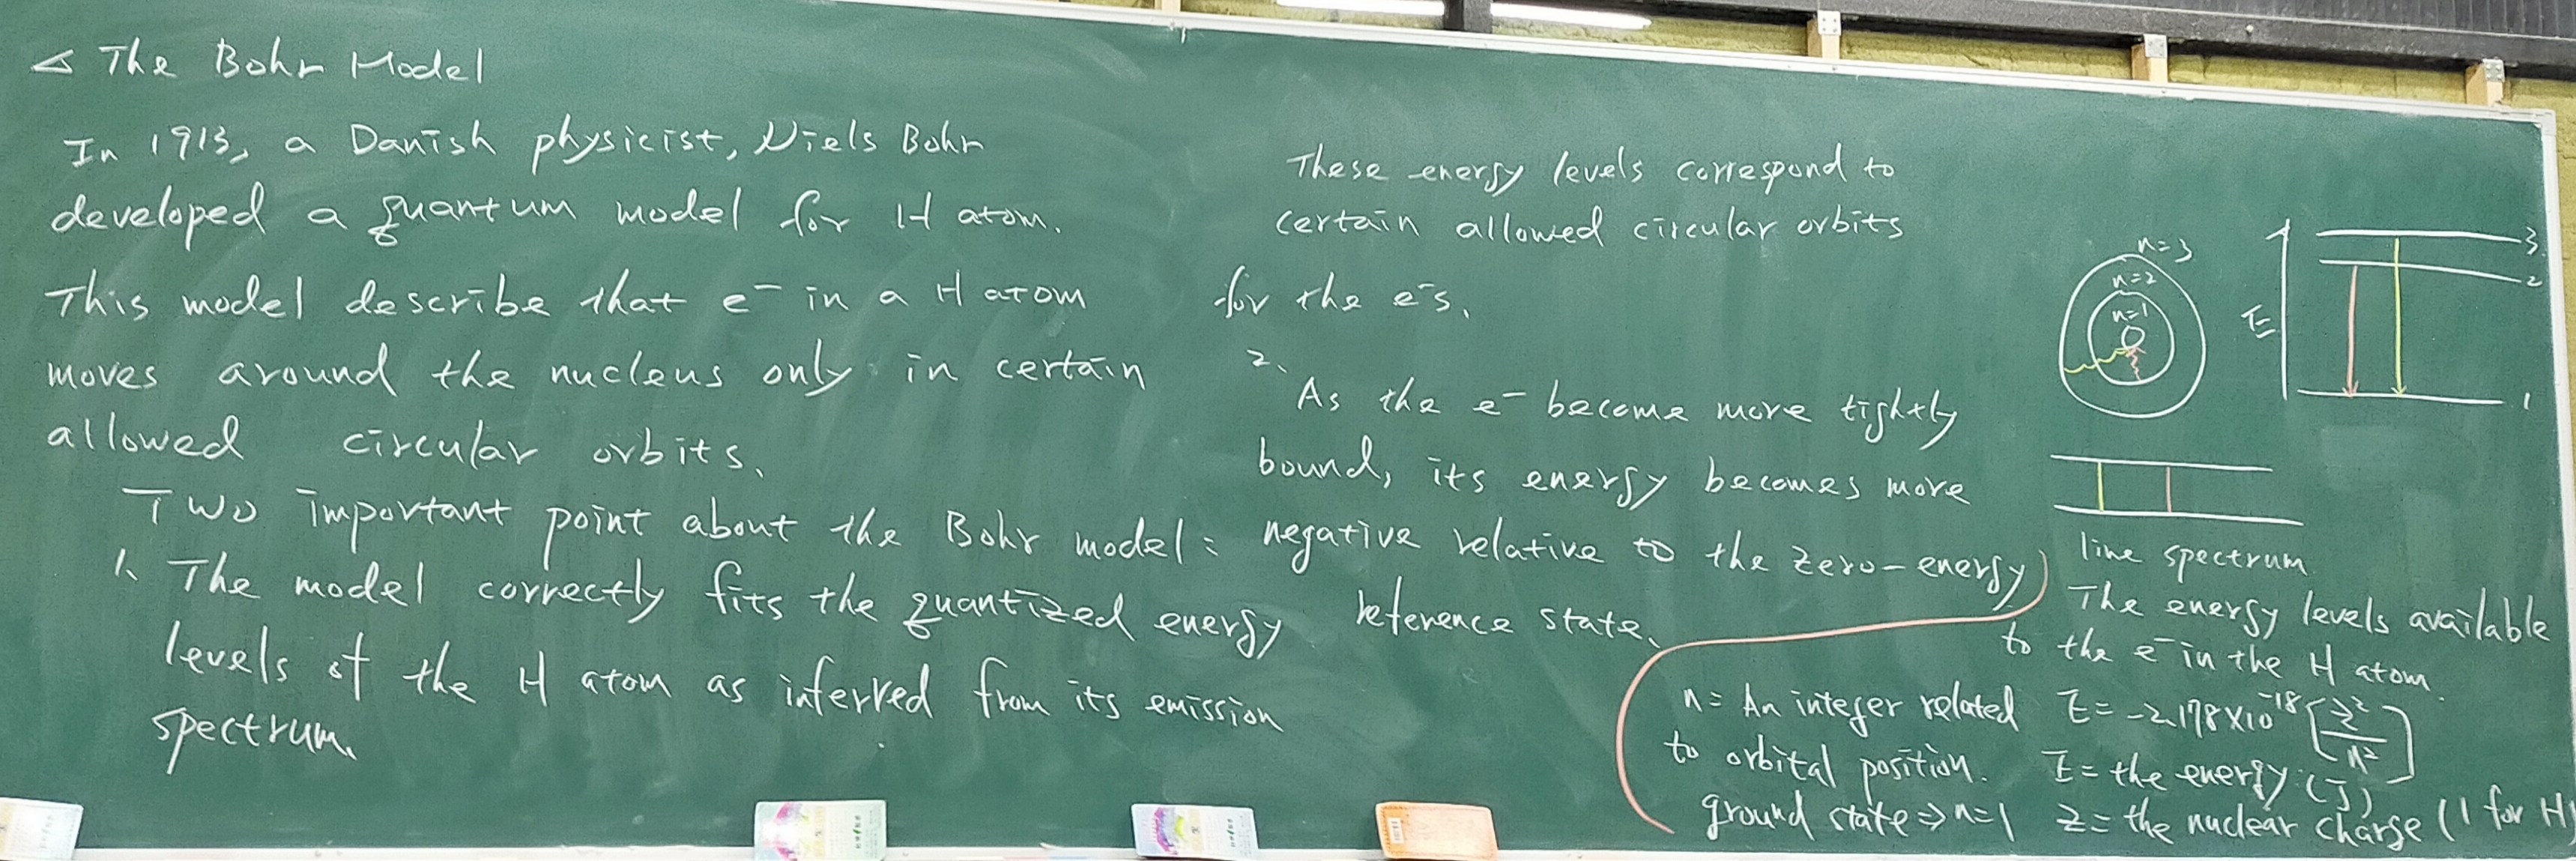 ◁ The Bohr Model
In 1913, a Danish physicist, Niels Bohr
developed a quantum model for H atom.
This model describe that e⁻ in a H atom
moves around the nucleus only in certain
allowed circular orbits.
Two important point about the Bohr model:
1. The model correctly fits the quantized energy
levels of the H atom as inferred from its emission
spectrum.
These energy levels correspond to
certain allowed circular orbits
for the e⁻s.
2.
As the e⁻ become more tightly
bound, its energy becomes more
negative relative to the zero-energy
reference state.
n=3
n=2
n=1
E
3
2
1
line spectrum
The energy levels available
to the e⁻ in the H atom.
E = -2.178×10⁻¹⁸ [Z²/n²]
E = the energy (J)
Z = the nuclear charge (1 for H)
n = An integer related
to orbital position.
ground state ⇒ n=1